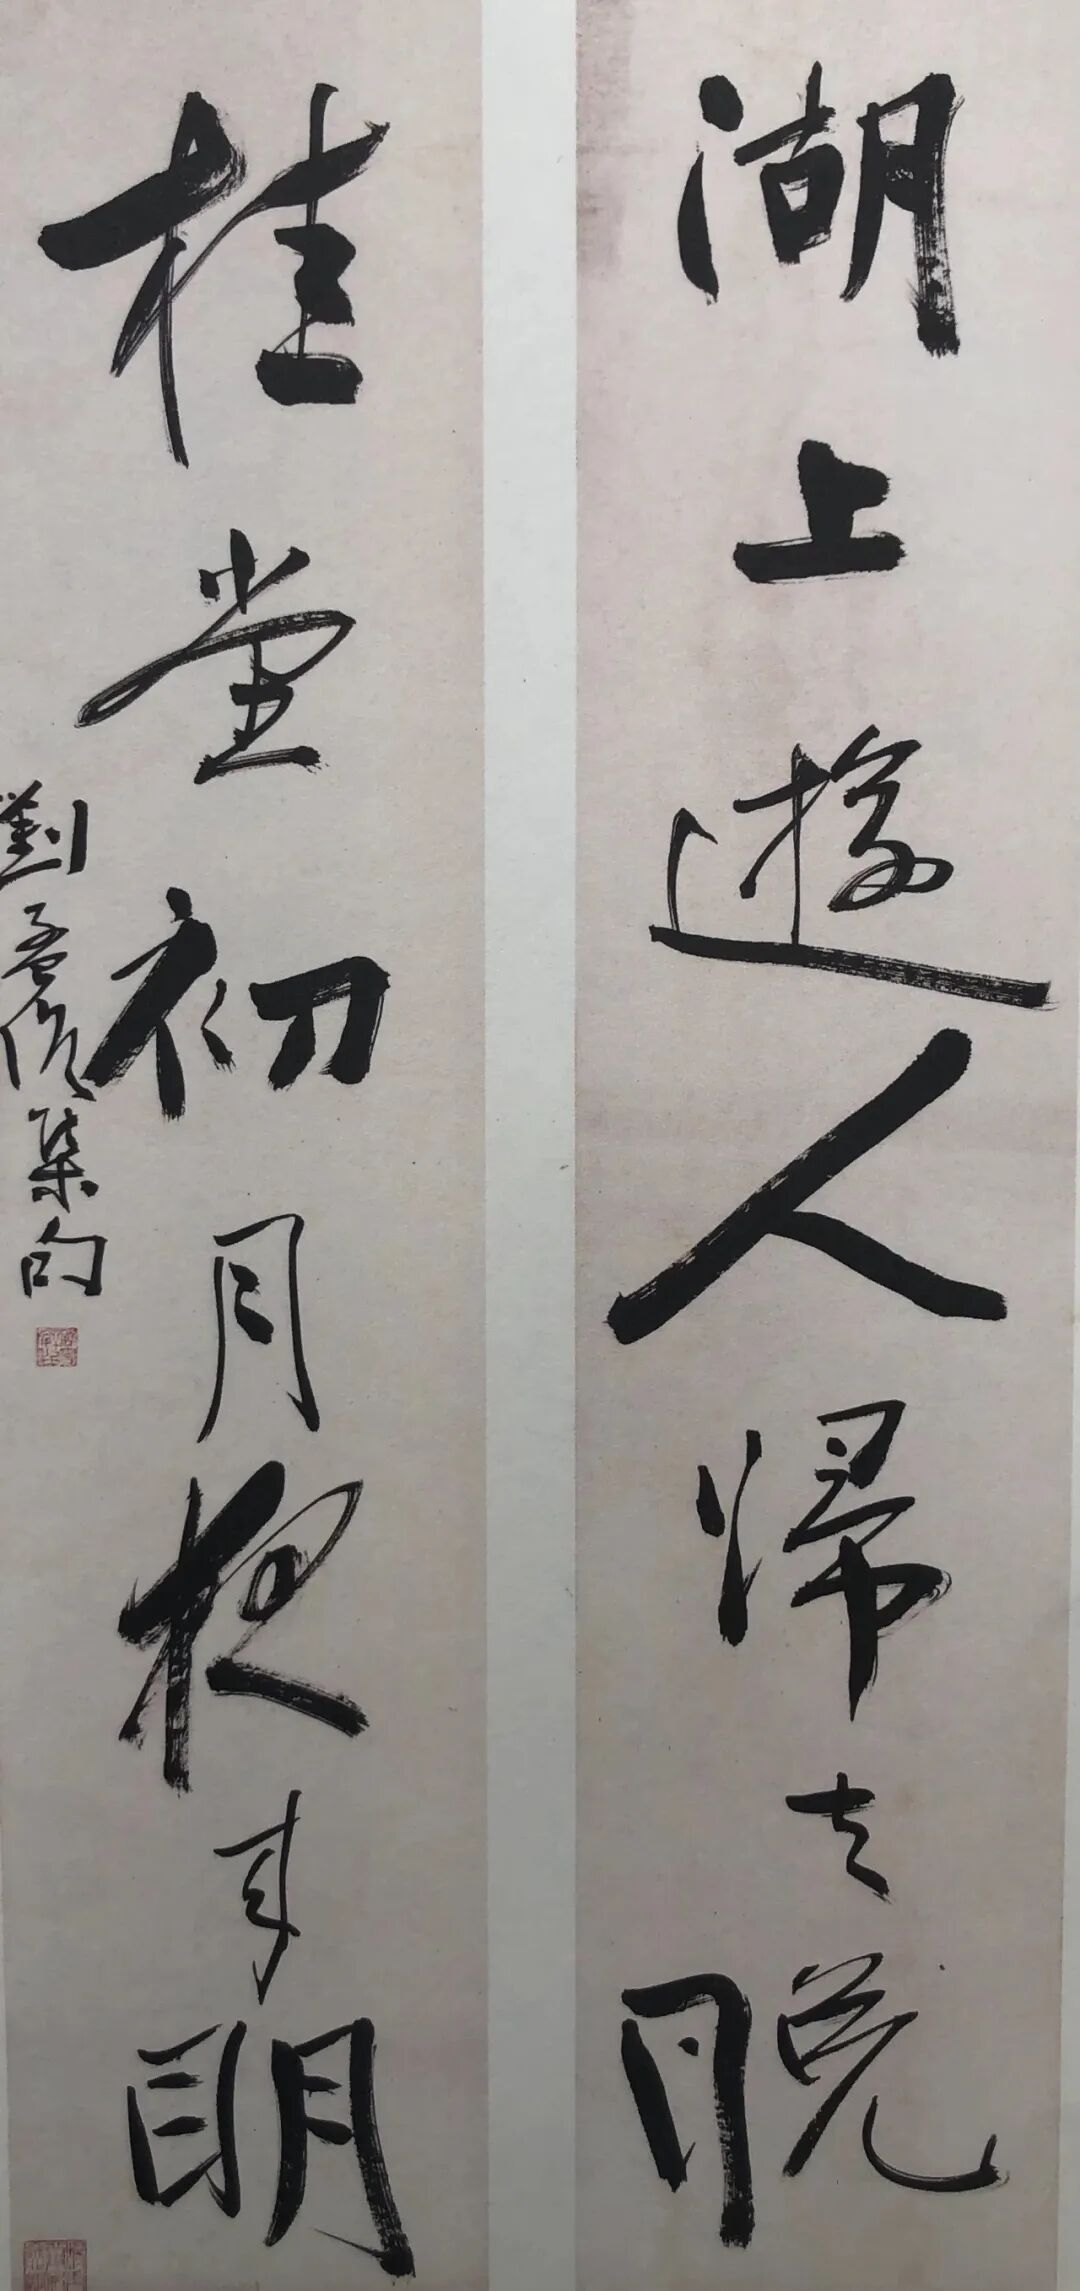 湖上遊人歸去晚
桂堂初月夜來明
劉孟伉集句